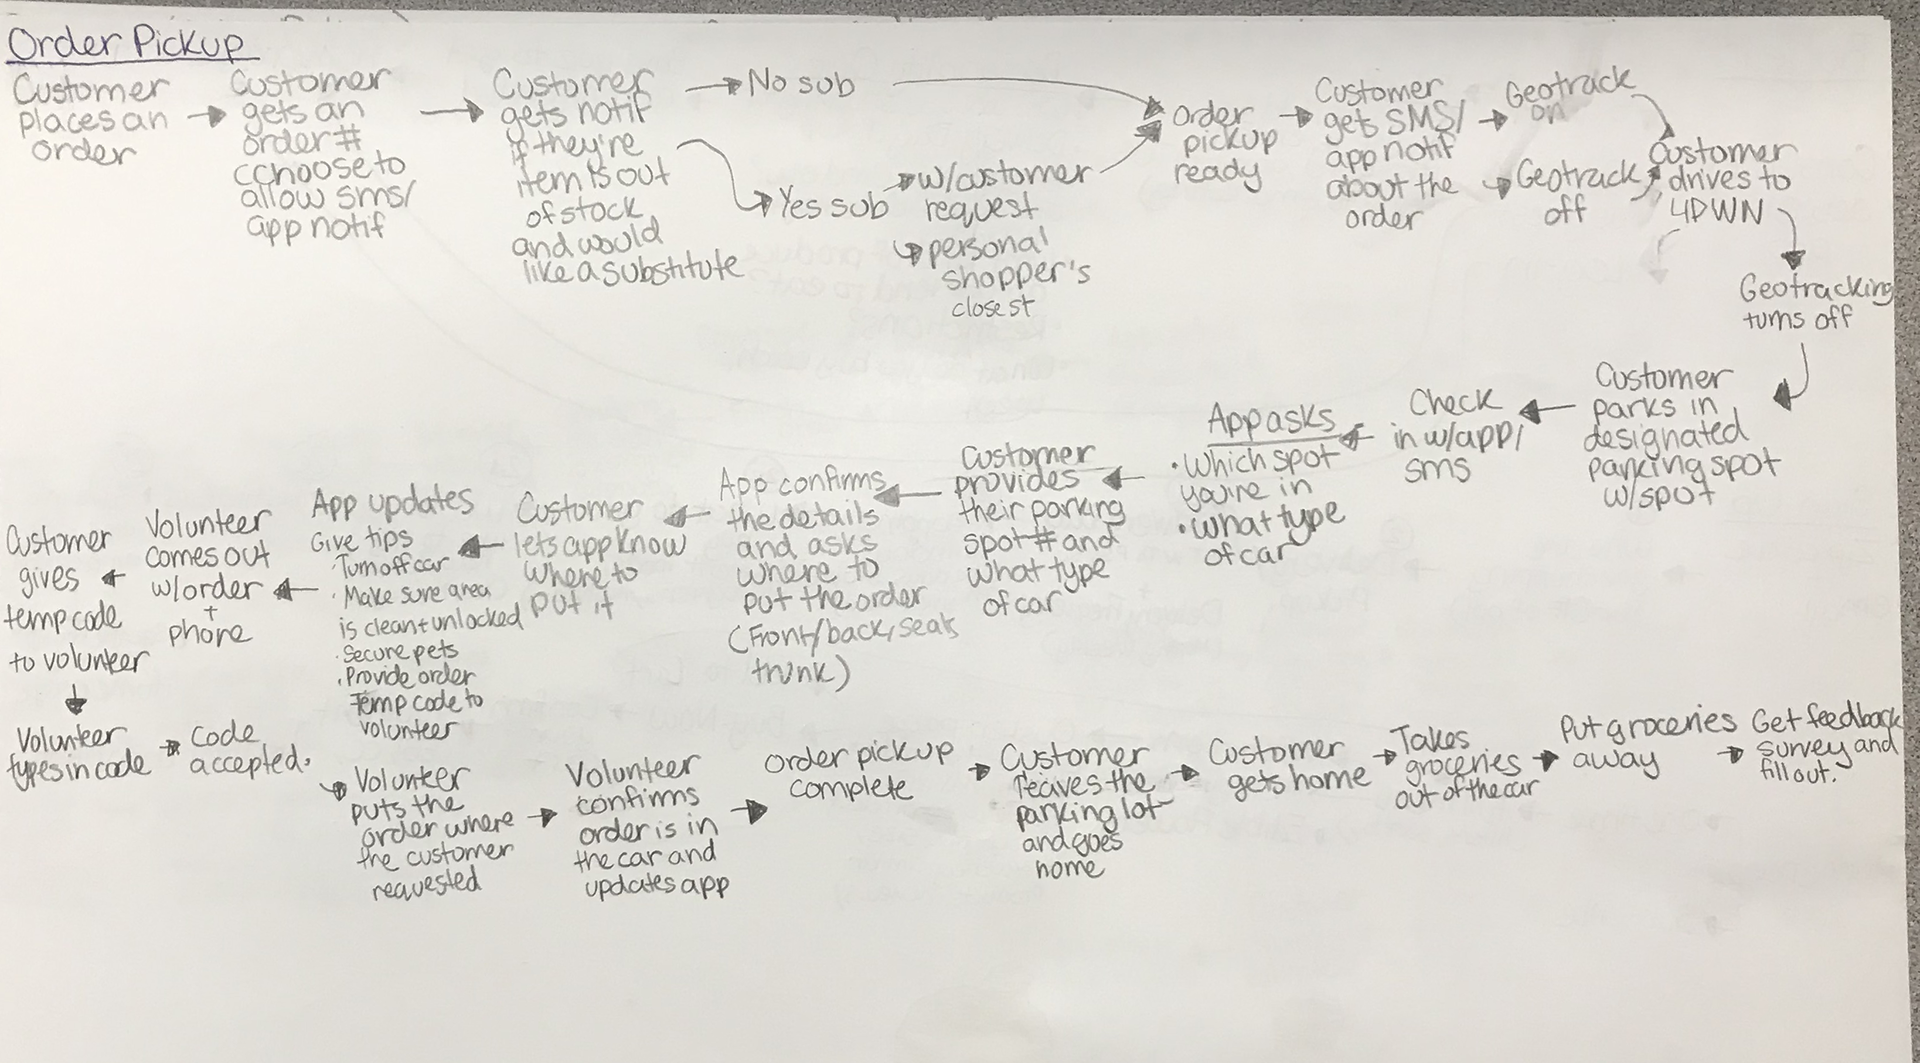 Order Pickup
Customer
places an
order
Customer
gets an
order #
cchoose to
allow sms/
app notif
Customer
gets notif
if they're
item is out
of stock
and would
like a substitute
No sub
Yes sub
w/customer
request
personal
shopper's
closest
Order
pickup
ready
Customer
get SMS/
app notif
about the
order
Geotrack
on
Geotrack
off
Customer
drives to
4PWN
Geotracking
turns off
Customer
parks in
designated
parking spot
w/spot
Check
in w/app/
sms
App asks
• Which spot
you're in
• What type
of car
Customer
provides
their parking
spot # and
what type
of car
App confirms
the details
and asks
where to
put the order
(Front/back, seats
trunk)
Customer
lets app know
where to
put it
App updates
Give tips
· Turn off car
· Make sure area
is clean + unlocked
· Secure pets
· Provide order
Temp code to
volunteer
Volunteer
comes out
w/order
+
phone
Customer
gives
temp code
to volunteer
Volunteer
types in code
Code
accepted.
Volunteer
puts the
order where
the customer
requested
Volunteer
confirms
order is in
the car and
updates app
order pickup
complete
Customer
leaves the
parking lot
and goes
home
Customer
gets home
Takes
groceries
out of the car
Put groceries
away
Get feedback
survey and
fill out.